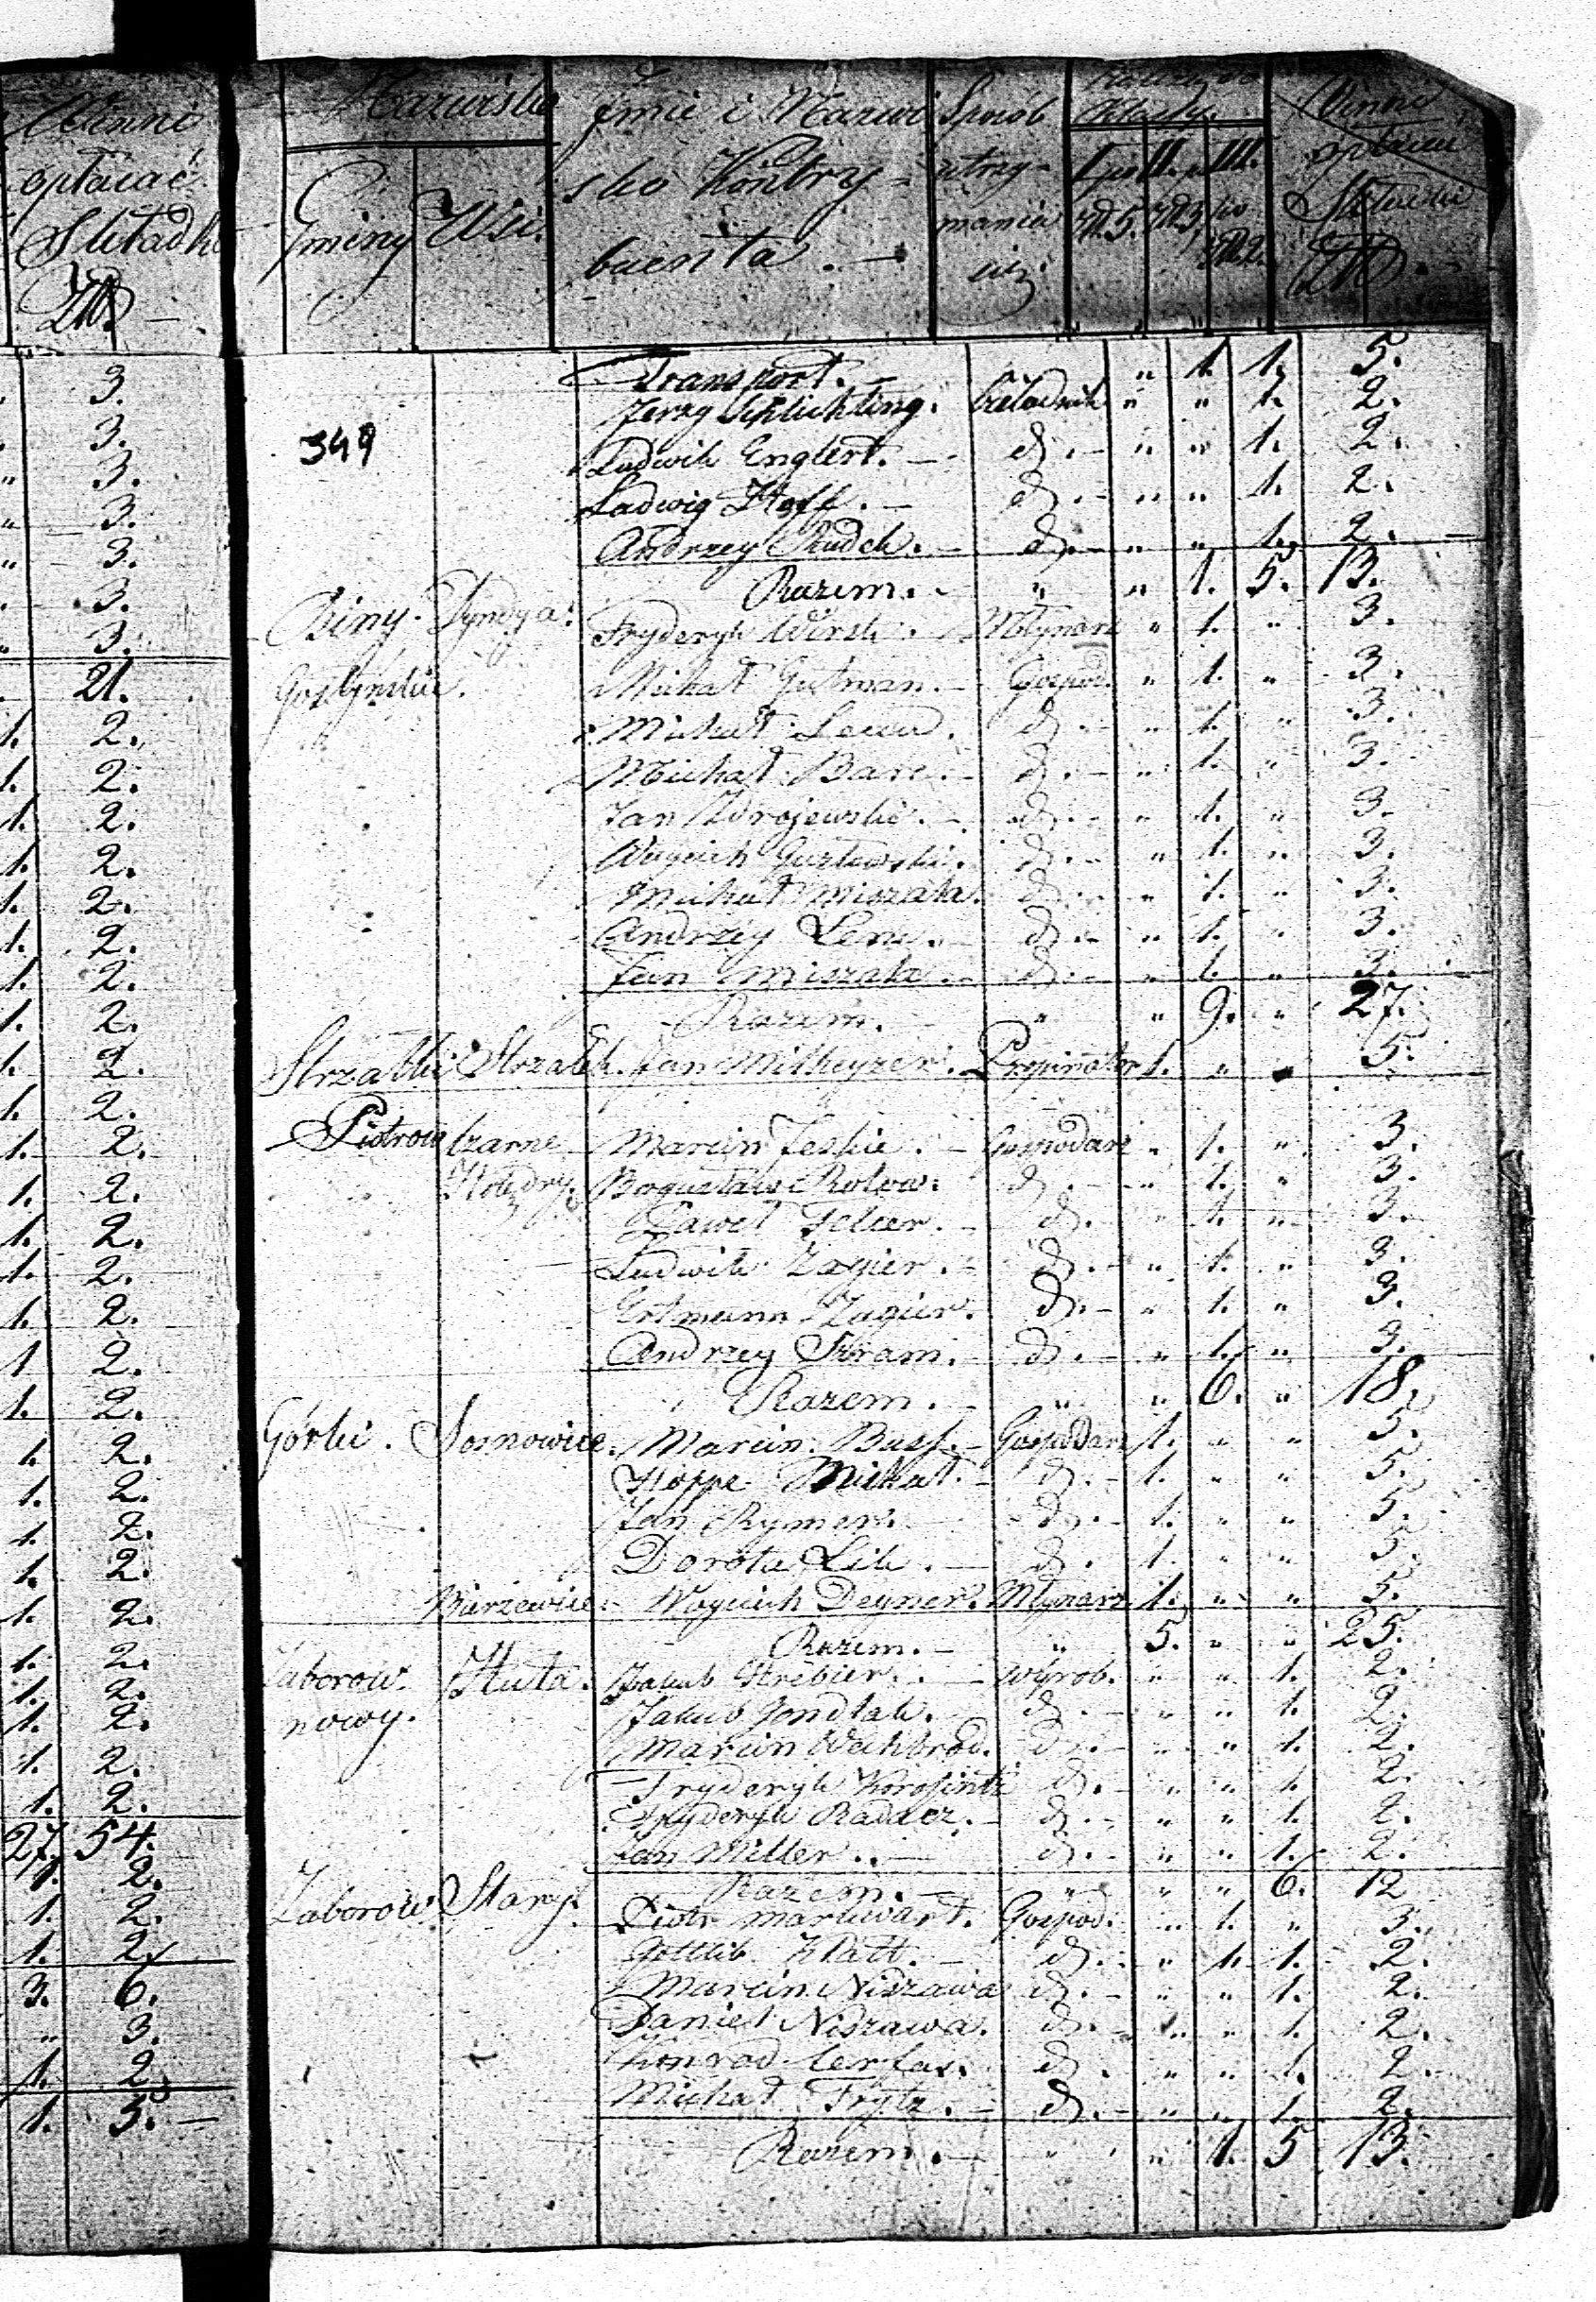 Winni
opłacać
Składki
Złp.
3.
3.
3.
3.
3.
3.
3.
21.
1. 2.
1. 2.
1. 2.
1. 2.
1. 2.
1. 2.
1. 2.
1. 2.
1. 2.
1. 2.
1. 2.
1. 2.
1. 2.
1. 2.
1. 2.
1 2.
1. 2.
1. 2.
1. 2.
1. 2.
1. 2.
1. 2.
1. 2.
1. 2.
1. 2.
1. 2.
1. 2.
27. 54.
1. 2.
1. 2.
1. 2.
3. 6.
" 3.
1. 2.
1. 5.
Nazwisko Imie i Nazwi Sposób Klassy. Winni
Gminy Wsi. sko Kontry= utrzy= I po II. III. opłacać
buenta. mania złp. 5. złp. 3. po złp. 2. Składki
się Złp.
Transport. " 1. 1. 5.
Jerzy Schlichting. Czeladnik " " 1. 2.
349 Ludwik Englert. d. " " 1. 2.
Ludwig Hoff. d. " " 1. 2.
Andrzey Rudek. d. " " 1. 2.
Razem. " " 1. 5. 13.
Biny. Dyndya. Fryderyk Wirsk. Młynarz " 1. " 3.
Gostyńskie. Michał Gutman. Gospod. " 1. " 3.
Michał d. " 1. " 3.
Michał Barc. d. " 1. " 3.
Jan Zdrojewski. d. " 1. " 3.
Woyciech d. " 1. " 3.
Michał Miszala. d. " 1. " 3.
Andrzey Lenc. d. " 1. " 3.
Jan Miszala. d. " 1. " 3.
Razem. " " 9. " 27.
Strzałki Strzałk. Jan Milheyzer. Propinator 1. " " 5.
Piotrow Czarne Marcin Jeskie. Gospodarz " 1. " 3.
Holędry. Bogusław Rolow. d. " 1. " 3.
Paweł Felcer. d. " 1. " 3.
Ludwik Zagier. d. " 1. " 3.
Ertmann Zagier. d. " 1. " 3.
Andrzey Szram. d. " 1. " 3.
Razem. " " 6. " 18.
Górki. Sosnowice. Marcin Buss. Gospodarz 1. " " 5.
Hoppe Michał. d. 1. " " 5.
Jan Rymer. d. 1. " " 5.
Dorota Lik. d. 1. " " 5.
Woyciech Deyner. Młynarz 1. " " 5.
Razem. " 5. " " 25.
Zaborow Huta. Jakub Strebier. Wyrob. " " 1. 2.
nowy. Jakub Gondlak. d. " " 1. 2.
Marcin Wachbrod. d. " " 1. 2.
Fryderyk d. " " 1. 2.
Fryderyk Radacz. d. " " 1. 2.
Jan Miller. d. " " 1. 2.
Razem. " " " 6. 12
Zaborow Stary. Piotr Markwart. Gospod. " 1. " 3.
Gottlib Klatt. d. " " 1. 2.
Marcin Niszawa d. " " 1. 2.
Daniel Niszawa. d. " " 1. 2.
Konrad Cerfas. d. " " 1. 2.
Michał Frytz. d. " " 1. 2.
Razem. " " 1. 5 13.